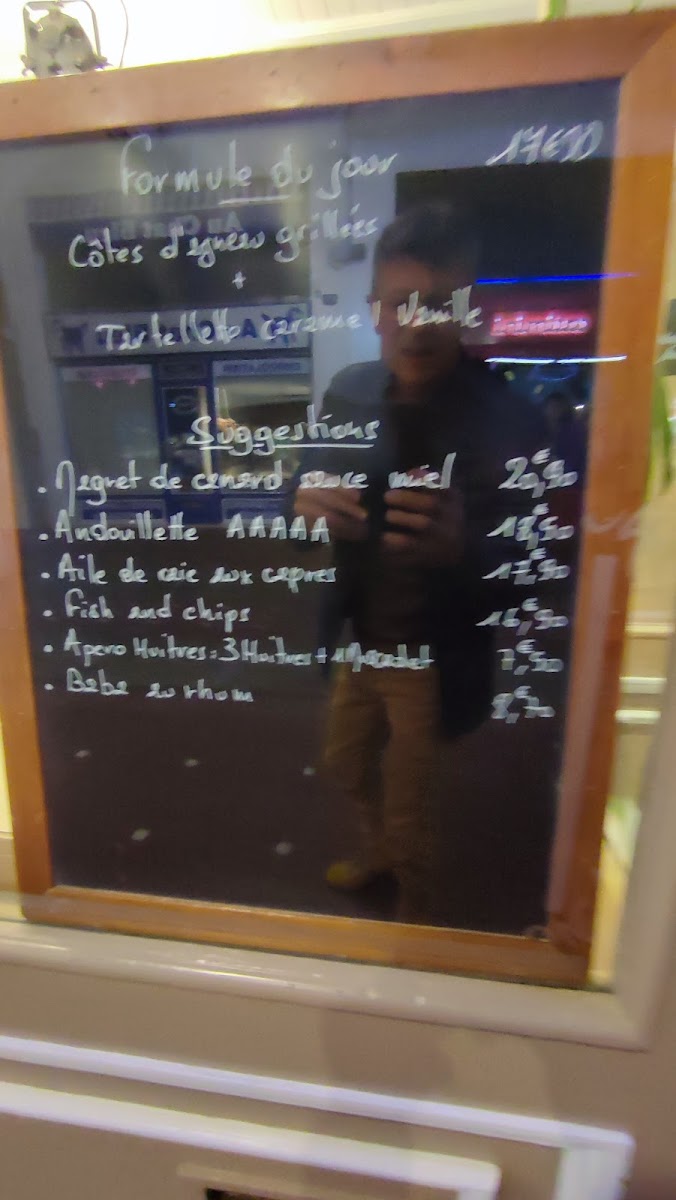 Formule du jour 17€90
Côtes d'agneau grillées
+
Tartelette caramel Vanille
Suggestions
. Magret de canard sauce miel 20,€90
. Andouillette AAAAA 18,€90
. Aile de raie aux capres 17,€90
. Fish and chips 16,€90
. Apero Huitres : 3 Huitres + 1 Muscadet 7,€90
. Baba au rhum 8,€70